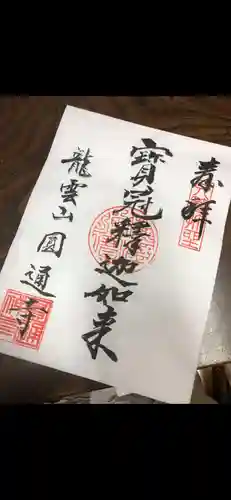 奉拜
寳冠釋迦如来
龍雲山圓通寺